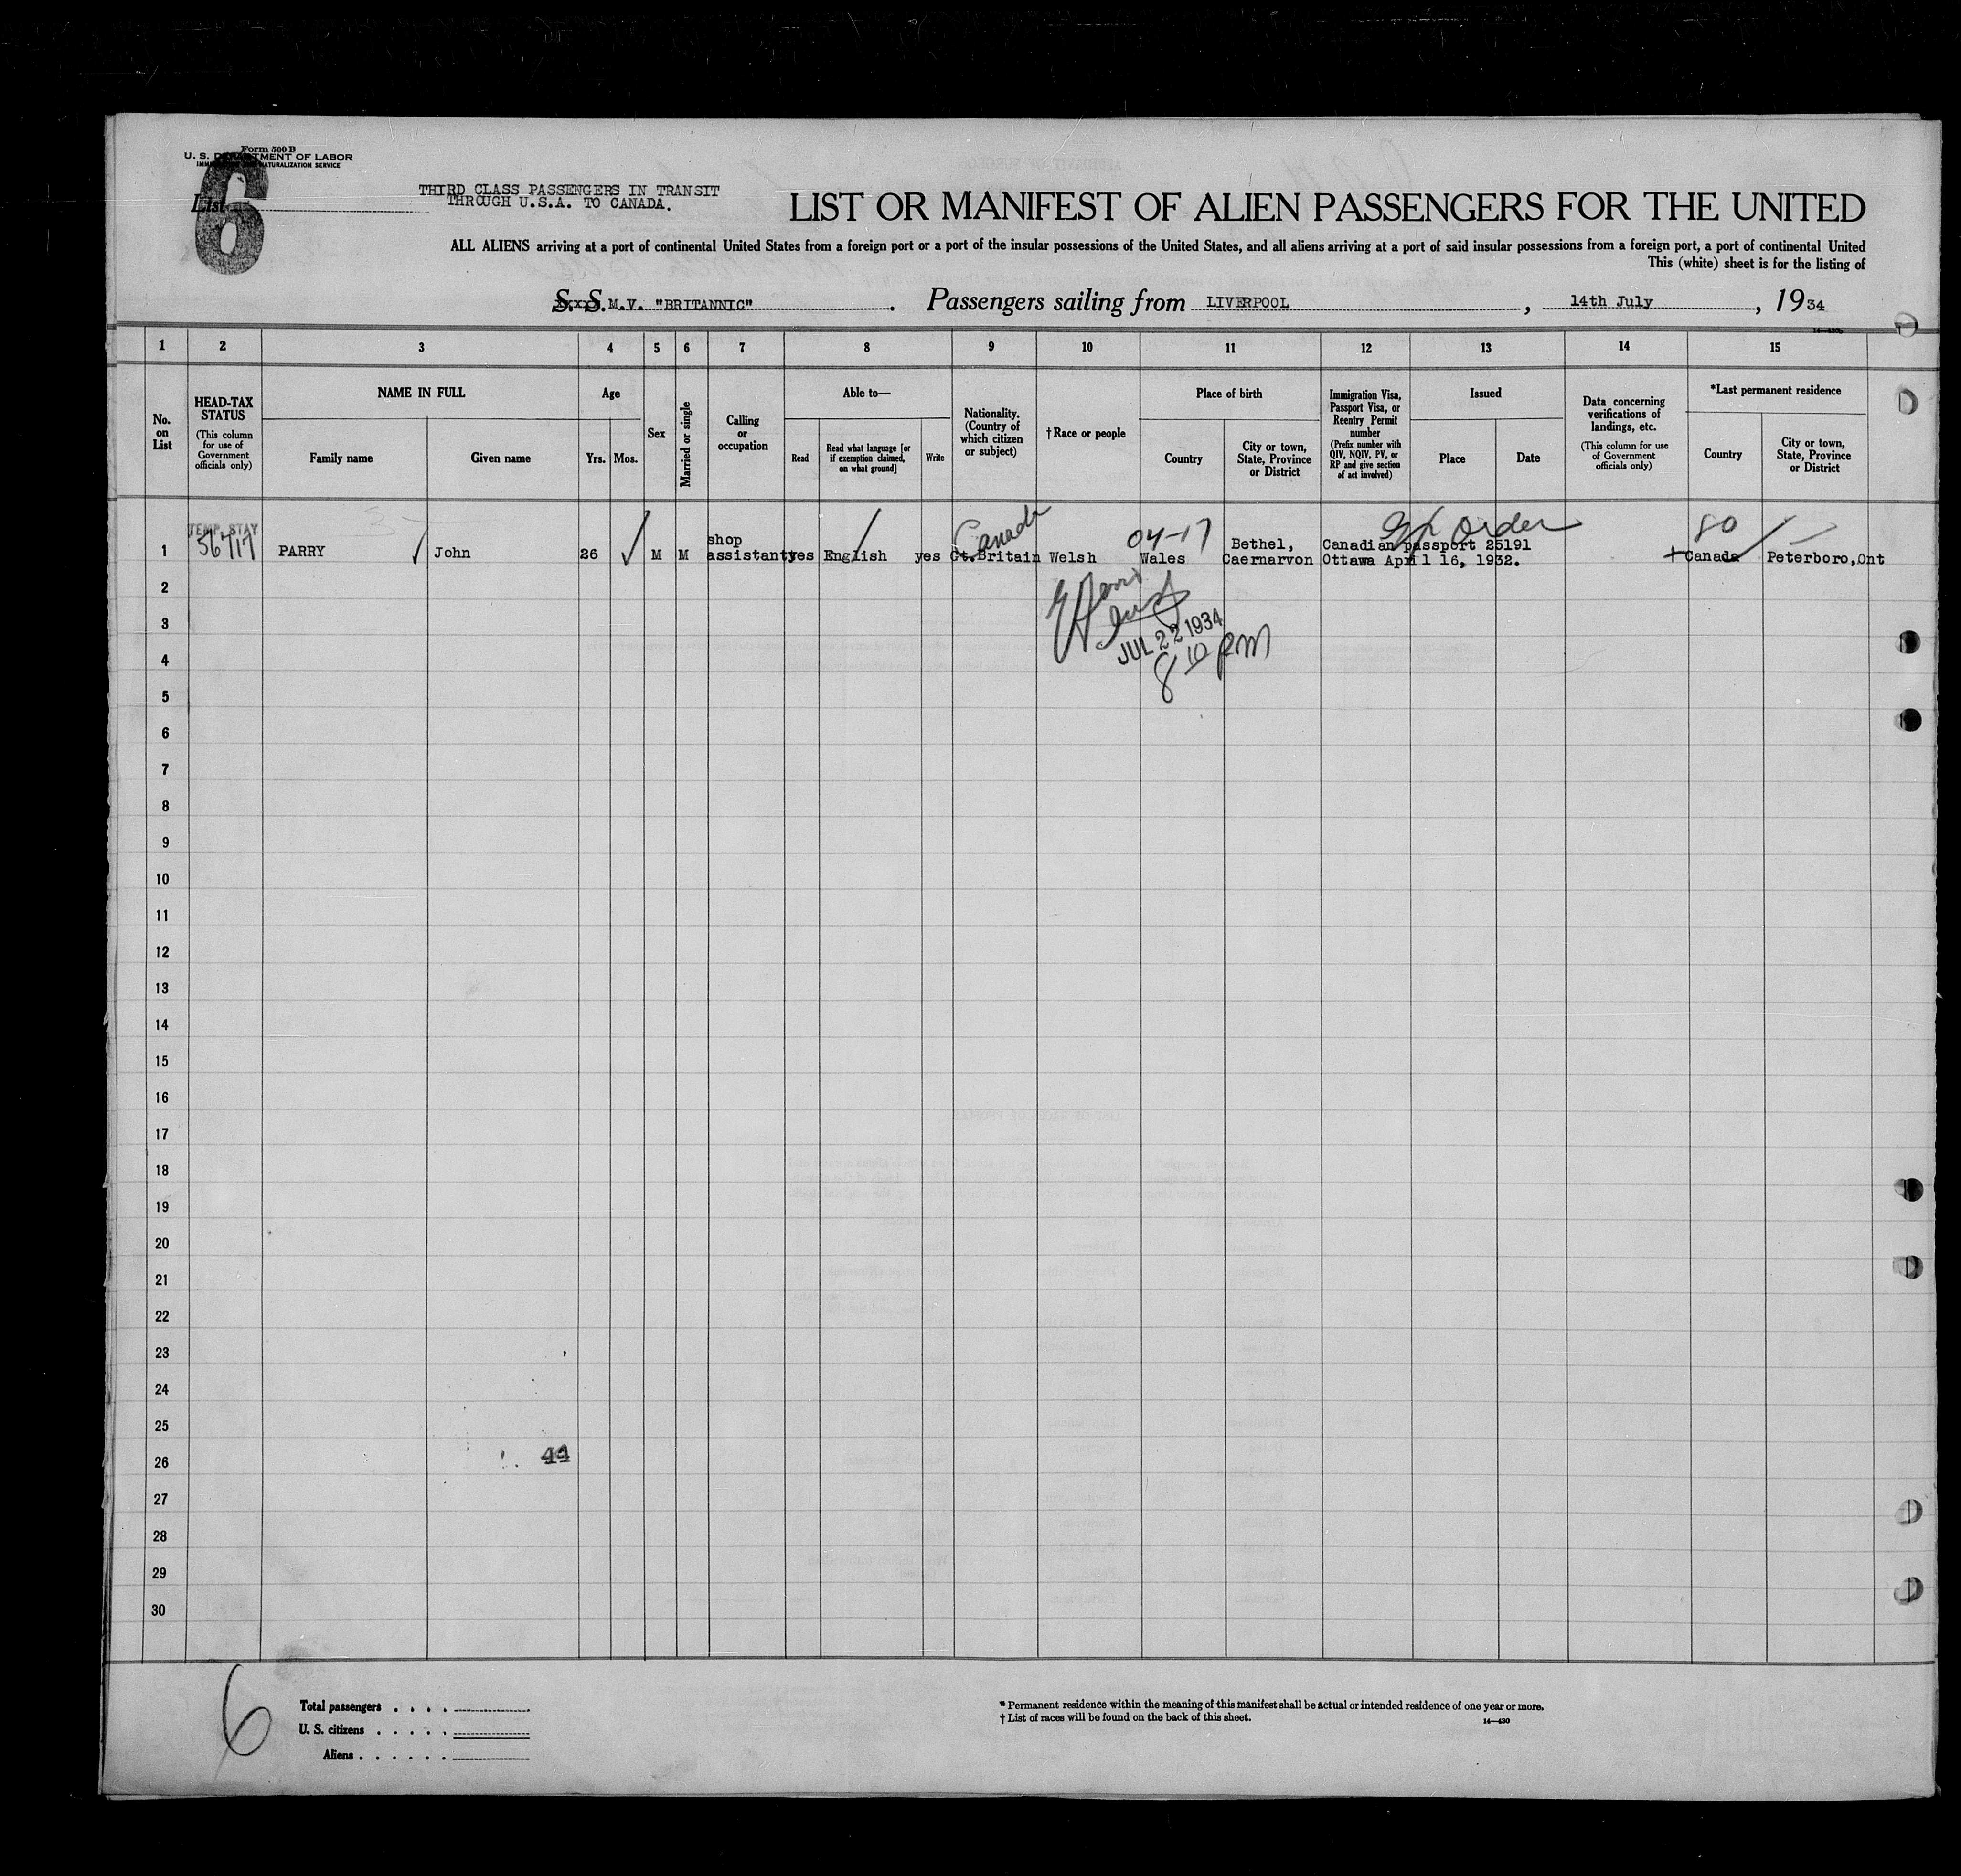 Form 500 B
U. S. DEPARTMENT OF LABOR
IMMIGRATION AND NATURALIZATION SERVICE
List
6
THIRD CLASS PASSENGERS IN TRANSIT
THROUGH U.S.A. TO CANADA.
LIST OR MANIFEST OF ALIEN PASSENGERS FOR THE UNITED
ALL ALIENS arriving at a port of continental United States from a foreign port or a port of the insular possessions of the United States, and all aliens arriving at a port of said insular possessions from a foreign port, a port of continental United
This (white) sheet is for the listing of
S. S. M.V. "BRITANNIC" . Passengers sailing from LIVERPOOL , 14th July , 1934
1 2 3 4 5 6 7 8 9 10 11 12 13 14 15
No. on List
HEAD-TAX STATUS
(This column for use of Government officials only)
NAME IN FULL
Family name
Given name
Age
Yrs.
Mos.
Sex
Married or single
Calling or occupation
Able to—
Read
Read what language [or if exemption claimed, on what ground]
Write
Nationality. (Country of which citizen or subject)
†Race or people
Place of birth
Country
City or town, State, Province or District
Immigration Visa, Passport Visa, or Reentry Permit number
(Prefix number with QIV, NQIV, PV, or RP and give section of act involved)
Issued
Place
Date
Data concerning verifications of landings, etc.
(This column for use of Government officials only)
*Last permanent residence
Country
City or town, State, Province or District
TEMP. STAY
56717
Canada
04-17
Order
80
1 PARRY John 26 M M shop assistant yes English yes Gt.Britain Welsh Wales Bethel, Caernarvon Canadian passport 25191 Ottawa April 16, 1932. Canada Peterboro, Ont
2
JUL 22 1934
3
8 10 PM
4
5
6
7
8
9
10
11
12
13
14
15
16
17
18
19
20
21
22
23
24
25
26
44
27
28
29
30
6
Total passengers . . . .
U. S. citizens . . . . .
Aliens . . . . . .
* Permanent residence within the meaning of this manifest shall be actual or intended residence of one year or more.
† List of races will be found on the back of this sheet.
14—430